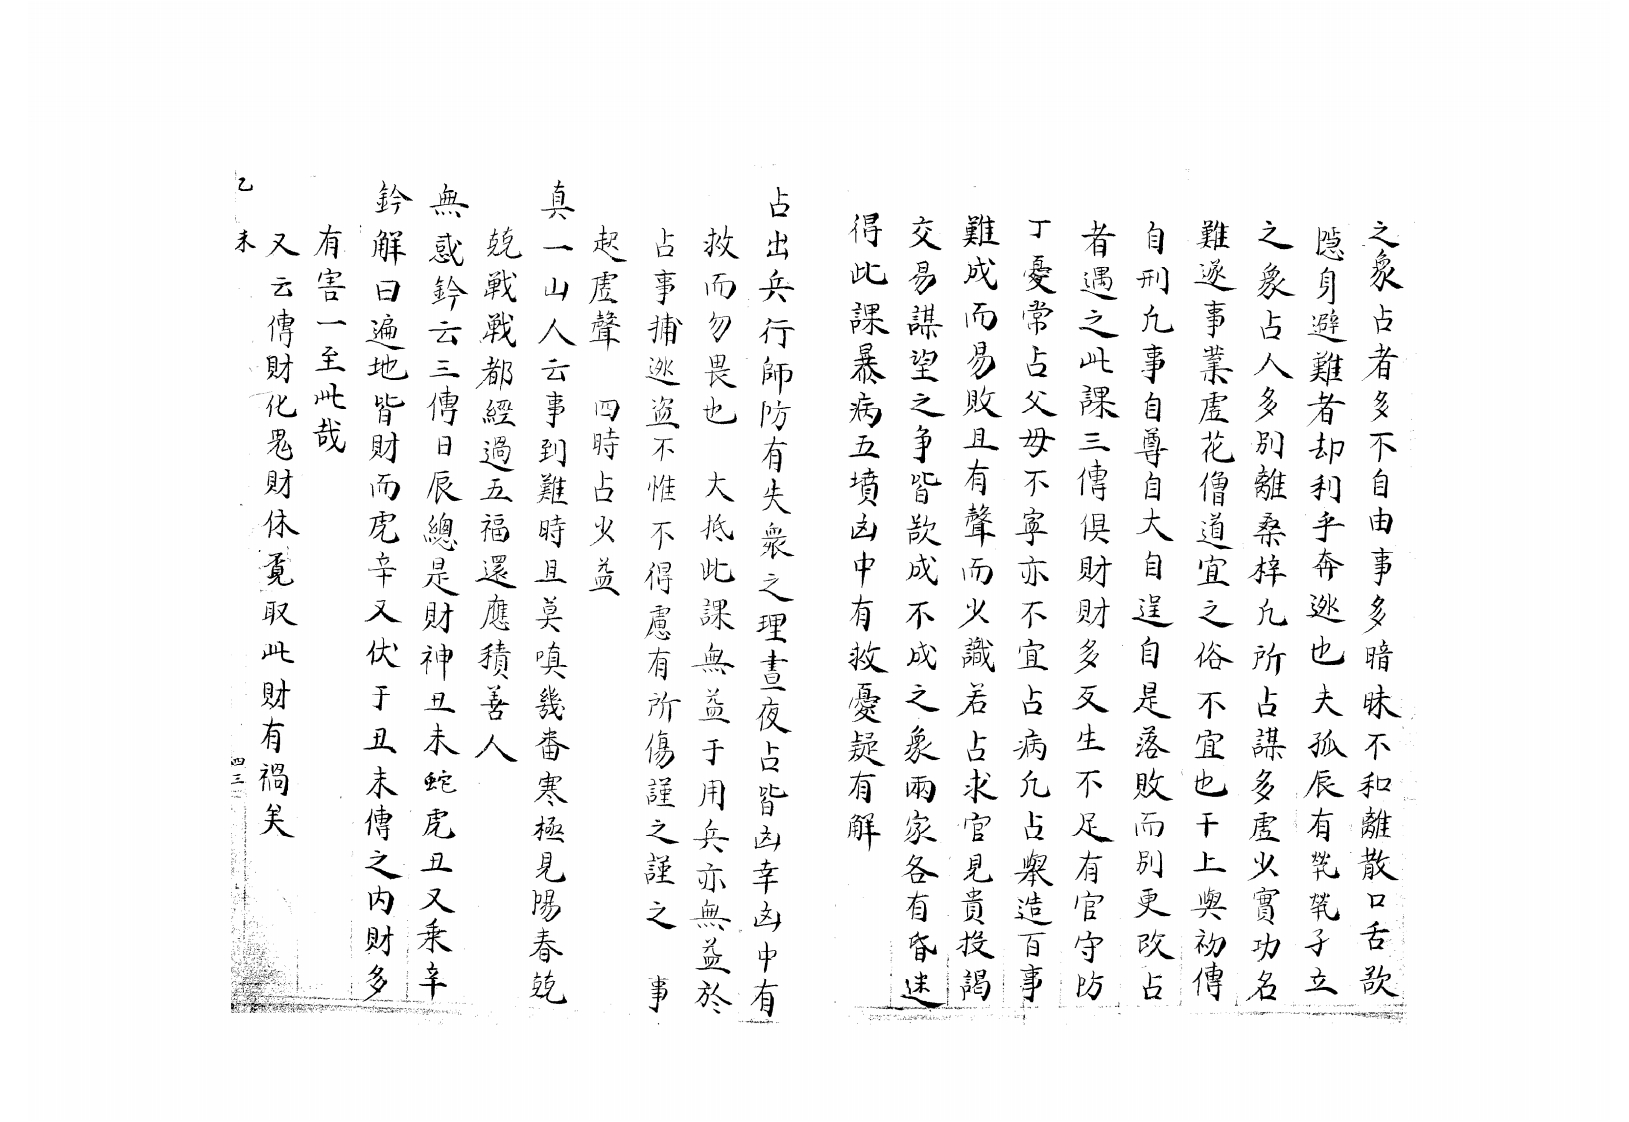 之象占者多不自由事多暗昧不和離散口舌歆
隱身避難者却利乎奔逃也夫孤辰有煢煢孑立
之象占人多別離桑梓凢所占謀多虛少實功名
難遂事業虛花僧道宜之俗不宜也干上與初傳
自刑凢事自尊自大自逞自是落敗而別更改占
者遇之此課三傳俱財財多反生不足有官守防
丁憂常占父母不寧亦不宜占病凢占舉造百事
難成而易敗且有聲而少識若占求官見貴投謁
交易謀望之争皆歆成不成之象兩家各有昏迷
得此課暴病五墳凶中有救憂疑有解
占出兵行師防有失衆之理晝夜占皆凶幸凶中有
救而勿畏也　大抵此課無益于用兵亦無益於
占事捕逃盜不惟不得慮有所傷謹之謹之　事
起虛聲　四時占少益
真一山人云事到難時且莫嗔幾番寒極見陽春兢
兢戰戰都經過五福還應積善人
無惑鈐云三傳日辰總是財神丑未蛇虎丑又乗辛
鈐解曰遍地皆財而虎辛又伏于丑未傳之内財多
有害一至此哉
又云傳財化鬼財休覓取此財有禍矣
乙未
四三